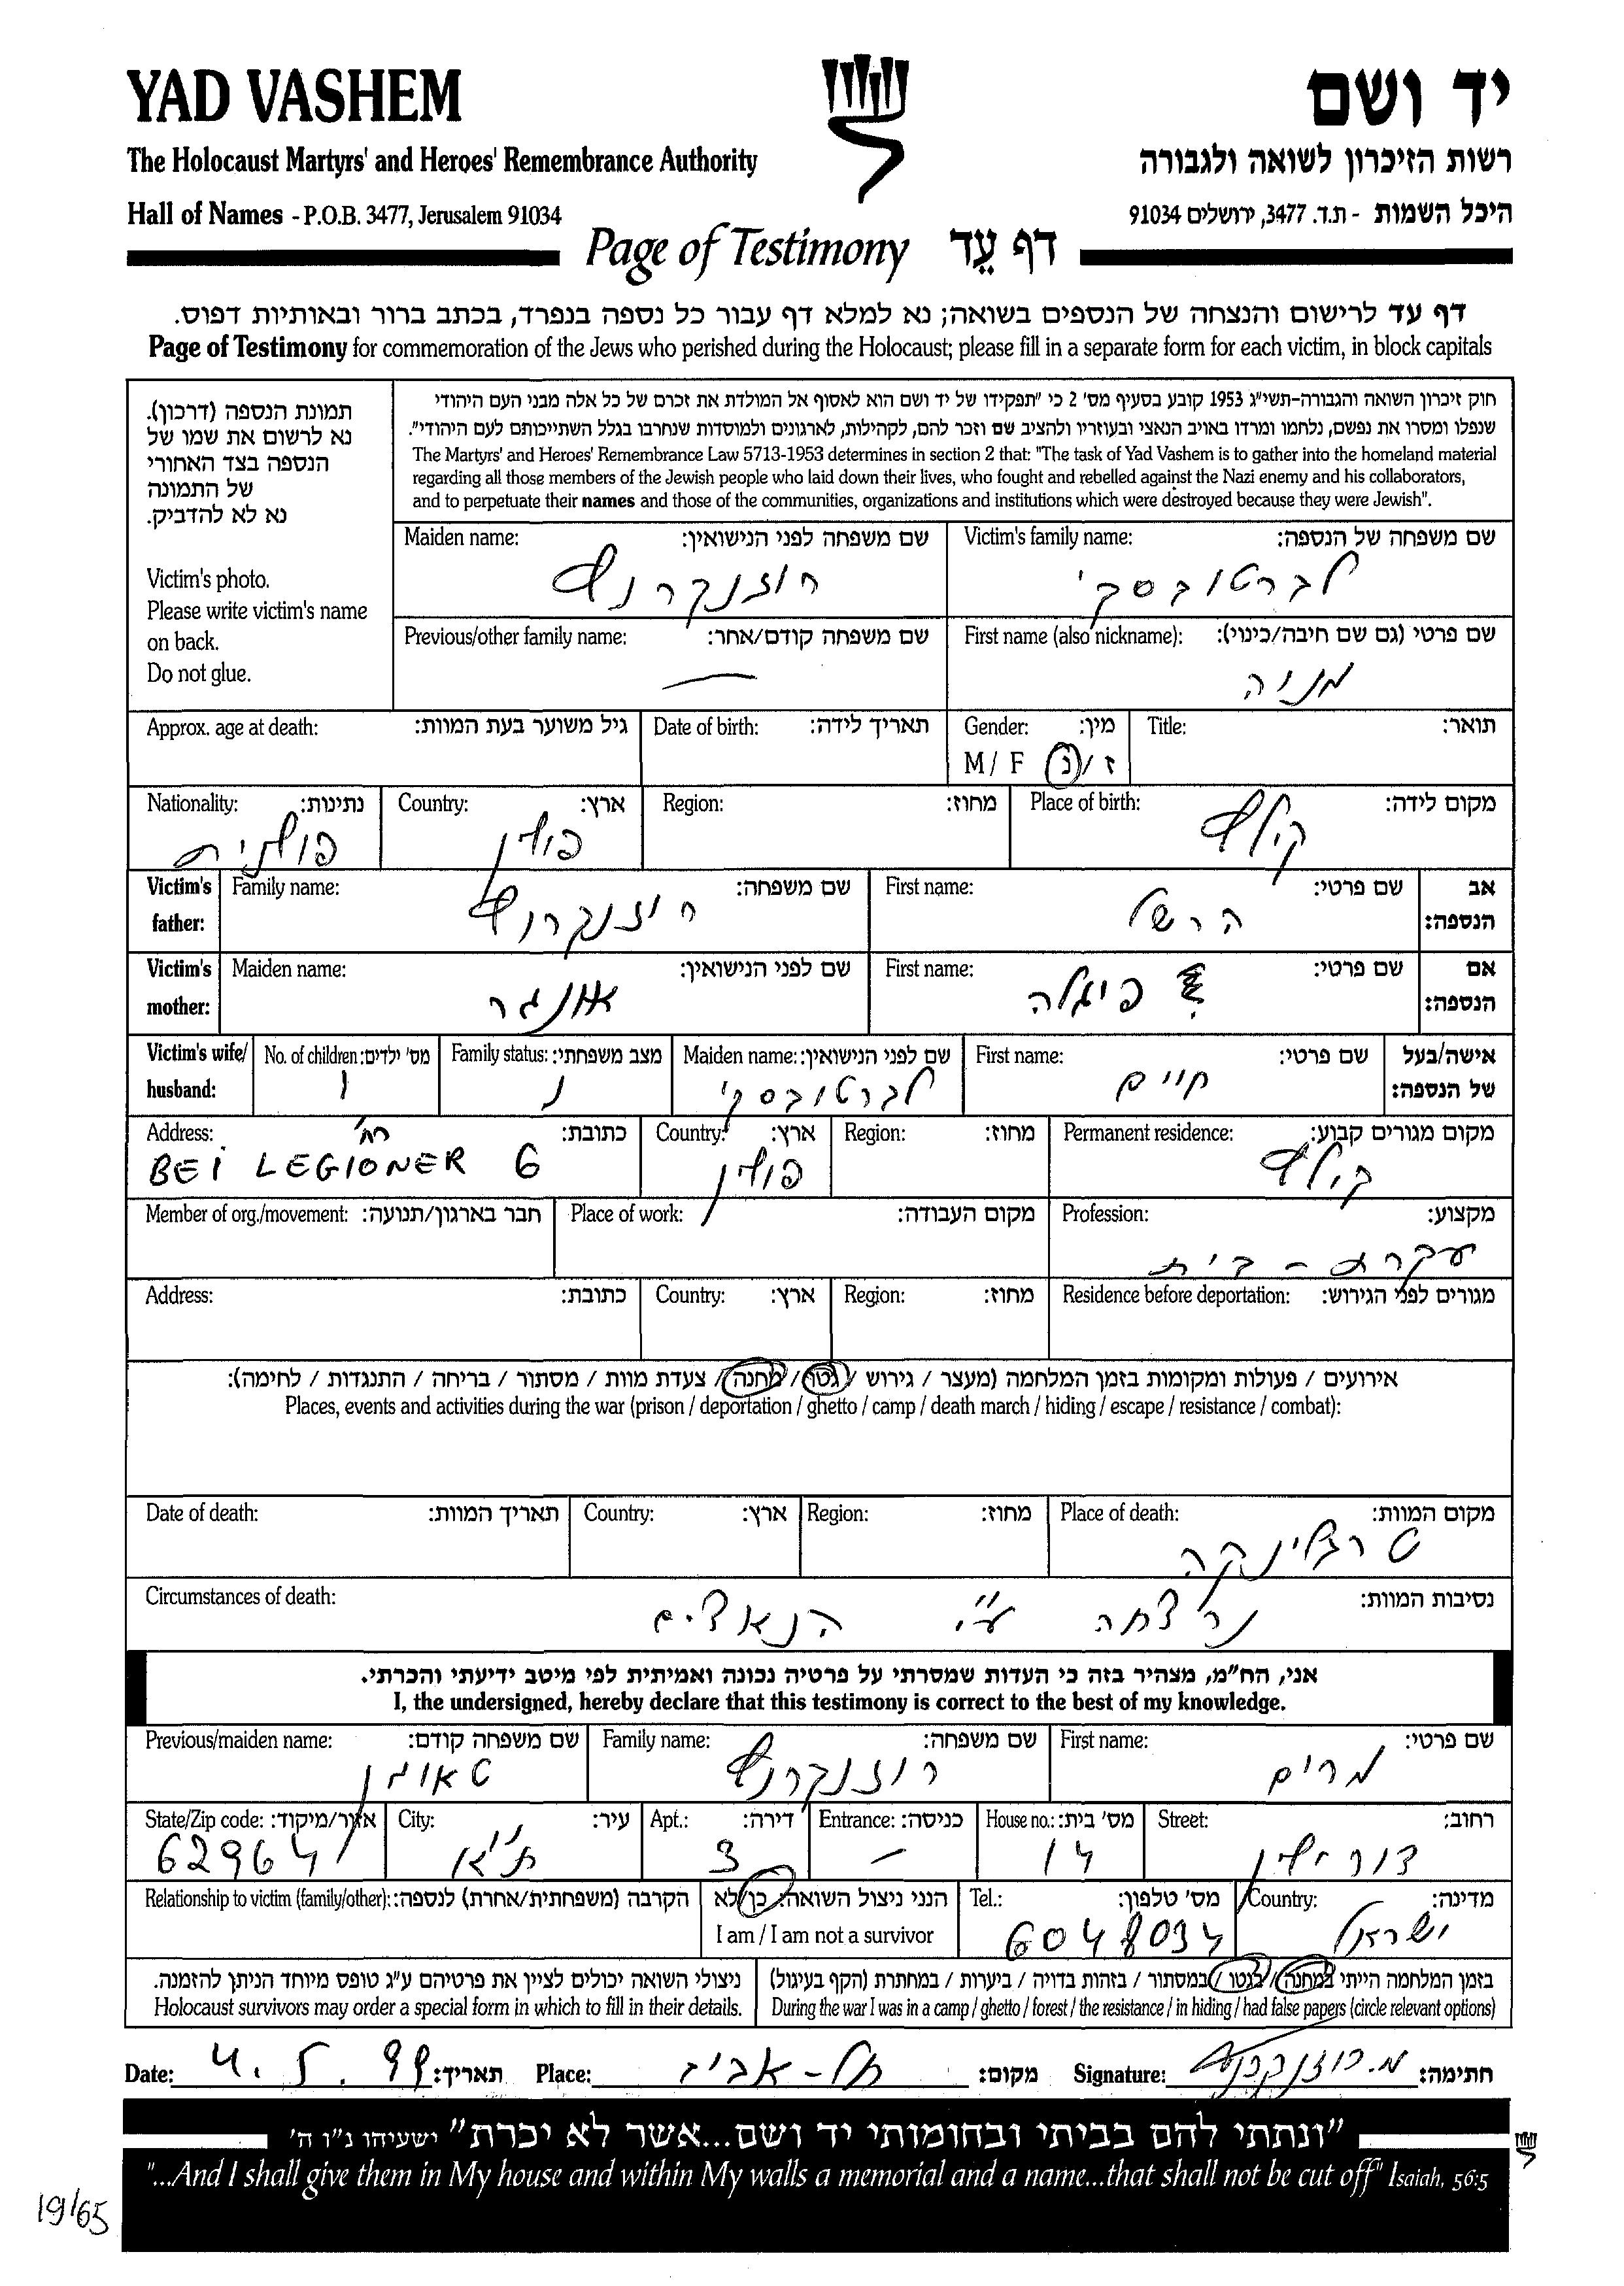 YAD VASHEM
יד ושם
The Holocaust Martyrs' and Heroes' Remembrance Authority
רשות הזיכרון לשואה ולגבורה
Hall of Names - P.O.B. 3477, Jerusalem 91034
היכל השמות - ת.ד. 3477, ירושלים 91034
Page of Testimony דף עֵד
דף עד לרישום והנצחה של הנספים בשואה; נא למלא דף עבור כל נספה בנפרד, בכתב ברור ובאותיות דפוס.
Page of Testimony for commemoration of the Jews who perished during the Holocaust; please fill in a separate form for each victim, in block capitals
תמונת הנספה (דרכון).
נא לרשום את שמו של
הנספה בצד האחורי
של התמונה
נא לא להדביק.
Victim's photo.
Please write victim's name
on back.
Do not glue.
חוק זיכרון השואה והגבורה-תשי"ג 1953 קובע בסעיף מס' 2 כי "תפקידו של יד ושם הוא לאסוף אל המולדת את זכרם של כל אלה מבני העם היהודי
שנפלו ומסרו את נפשם, נלחמו ומרדו באויב הנאצי ובעוזריו ולהציב שם וזכר להם, לקהילות, לארגונים ולמוסדות שנחרבו בגלל השתייכותם לעם היהודי".
The Martyrs' and Heroes' Remembrance Law 5713-1953 determines in section 2 that: "The task of Yad Vashem is to gather into the homeland material
regarding all those members of the Jewish people who laid down their lives, who fought and rebelled against the Nazi enemy and his collaborators,
and to perpetuate their names and those of the communities, organizations and institutions which were destroyed because they were Jewish".
Victim's family name: שם משפחה של הנספה:
לברטובסקי
Maiden name: שם משפחה לפני הנישואין:
רוזנקרנץ
First name (also nickname): שם פרטי (גם שם חיבה/כינוי):
מניה
Previous/other family name: שם משפחה קודם/אחר:
—
Title: תואר:
Gender: מין:
M / F ז / נ
Date of birth: תאריך לידה:
Approx. age at death: גיל משוער בעת המוות:
Place of birth: מקום לידה:
קילץ
Region: מחוז:
Country: ארץ:
פולין
Nationality: נתינות:
פולנית
Victim's father: אב הנספה:
First name: שם פרטי:
הרשל
Family name: שם משפחה:
רוזנקרנץ
Victim's mother: אם הנספה:
First name: שם פרטי:
פיגלה
Maiden name: שם לפני הנישואין:
אונגר
Victim's wife/ husband: אישה/בעל של הנספה:
First name: שם פרטי:
חיים
Maiden name: שם לפני הנישואין:
לברטובסקי
Family status: מצב משפחתי:
נ
No. of children: מס' ילדים:
1
Permanent residence: מקום מגורים קבוע:
קילץ
Region: מחוז:
Country: ארץ:
פולין
Address: כתובת:
רח'
BEI LEGIONER 6
Profession: מקצוע:
עקרת - בית
Place of work: מקום העבודה:
Member of org./movement: חבר בארגון/תנועה:
Residence before deportation: מגורים לפני הגירוש:
Region: מחוז:
Country: ארץ:
Address: כתובת:
אירועים / פעולות ומקומות בזמן המלחמה (מעצר / גירוש / גטו / מחנה / צעדת מוות / מסתור / בריחה / התנגדות / לחימה):
Places, events and activities during the war (prison / deportation / ghetto / camp / death march / hiding / escape / resistance / combat):
Place of death: מקום המוות:
טרבלינקה
Region: מחוז:
Country: ארץ:
Date of death: תאריך המוות:
Circumstances of death: נסיבות המוות:
נרצחה ע"י הנאצים
אני, הח"מ, מצהיר בזה כי העדות שמסרתי על פרטיה נכונה ואמיתית לפי מיטב ידיעתי והכרתי.
I, the undersigned, hereby declare that this testimony is correct to the best of my knowledge.
First name: שם פרטי:
מרים
Family name: שם משפחה:
רוזנקרנץ
Previous/maiden name: שם משפחה קודם:
Street: רחוב:
House no.: מס' בית:
14
Entrance: כניסה:
—
Apt.: דירה:
3
City: עיר:
ת"א
State/Zip code: אזור/מיקוד:
62964
Country: מדינה:
ישראל
Tel.: מס' טלפון:
6048034
הנני ניצול השואה: כן/לא
I am / I am not a survivor
Relationship to victim (family/other): הקרבה (משפחתית/אחרת) לנספה:
בזמן המלחמה הייתי במחנה / בגטו / במסתור / בזהות בדויה / ביערות / במחתרת (הקף בעיגול)
During the war I was in a camp / ghetto / forest / the resistance / in hiding / had false papers (circle relevant options)
ניצולי השואה יכולים לציין את פרטיהם ע"ג טופס מיוחד הניתן להזמנה.
Holocaust survivors may order a special form in which to fill in their details.
Date: 4.5.99 תאריך:
Place: תל-אביב מקום:
Signature: מ. רוזנקרנץ חתימה:
"ונתתי להם בביתי ובחומותי יד ושם...אשר לא יכרת" ישעיהו נ"ו ה'
"...And I shall give them in My house and within My walls a memorial and a name...that shall not be cut off" Isaiah, 56:5
19/65